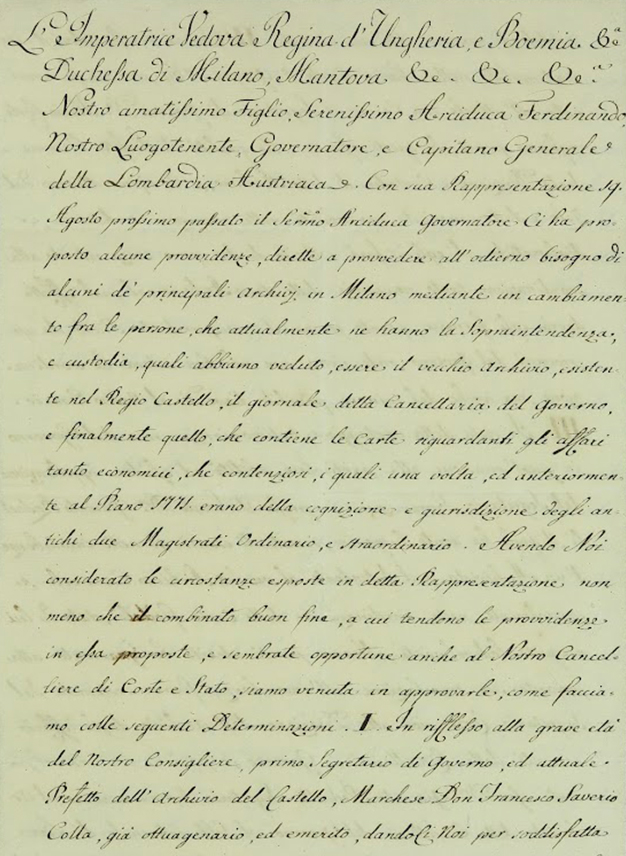 L'Imperatrice Vedova Regina d'Ungheria, e Boemia &c.ª
Duchessa di Milano, Mantova &c. &c. &c.ª
Nostro amatissimo Figlio, Serenissimo Arciduca Ferdinando,
Nostro Luogotenente, Governatore, e Capitano Generale
della Lombardia Austriaca. Con sua Rappresentazione
Agosto prossimo passato il Ser.mo Arciduca Governatore Ci ha pro-
posto alcune provvidenze, dirette a provvedere all'odierno bisogno di
alcuni de' principali Archivj in Milano mediante un cambiamen-
to fra le persone, che attualmente ne hanno la Sopraintendenza,
e custodia, quali abbiamo veduto, essere il vecchio Archivio, esisten-
te nel Regio Castello, il giornale della Cancellaria del Governo,
e finalmente quello, che contiene le Carte riguardanti gli affari
tanto economici, che contenziosi, i quali una volta, ed anteriormen-
te al Piano 1771 erano della cognizione e giurisdizione degli an-
tichi due Magistrati Ordinario, e straordinario. Avendo Noi
considerato le circostanze esposte in detta Rappresentazione non
meno che il combinato buon fine, a cui tendono le provvidenze
in essa proposte, e sembrate opportune anche al Nostro Cancel-
liere di Corte e Stato, siamo venuta in approvarle, come faccia-
mo colle seguenti Determinazioni. I. In rifflesso alla grave età
del Nostro Consigliere, primo Segretario di Governo, ed attuale
Prefetto dell'Archivio del Castello, Marchese Don Francesco Saverio
Colla, già ottuagenario, ed emerito, dandoCi Noi per soddisfatta